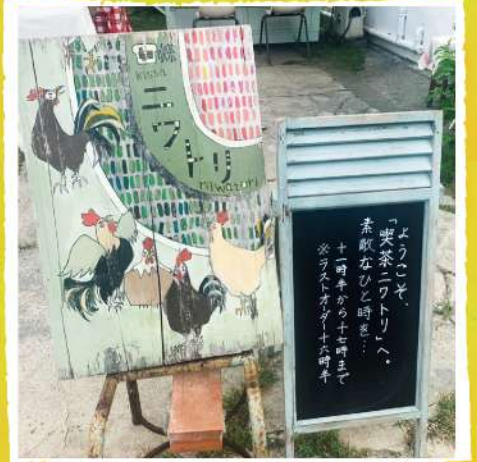 kissa
ニワトリ
niwatori
ようこそ、
「喫茶ニワトリ」へ。
素敵なひと時を…
十一時半から十七時まで
※ラストオーダー十六時半